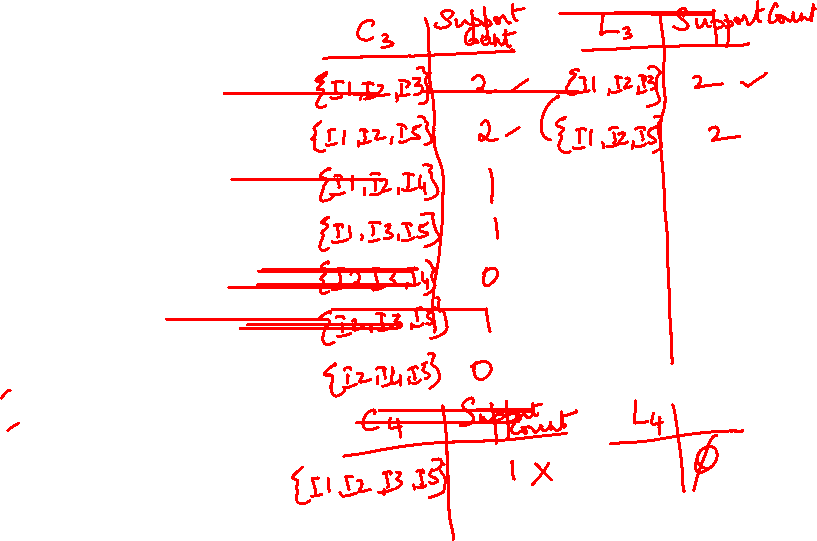 C3 Support Count
{I1, I2, I3} 2 ✓
{I1, I2, I5} 2 ✓
{I1, I2, I4} 1
{I1, I3, I5} 1
{I2, I3, I4} 0
{I2, I3, I5} 1
{I2, I4, I5} 0
L3 Support Count
{I1, I2, I3} 2 ✓
{I1, I2, I5} 2
C4 Support Count
{I1, I2, I3, I5} 1 X
L4
∅